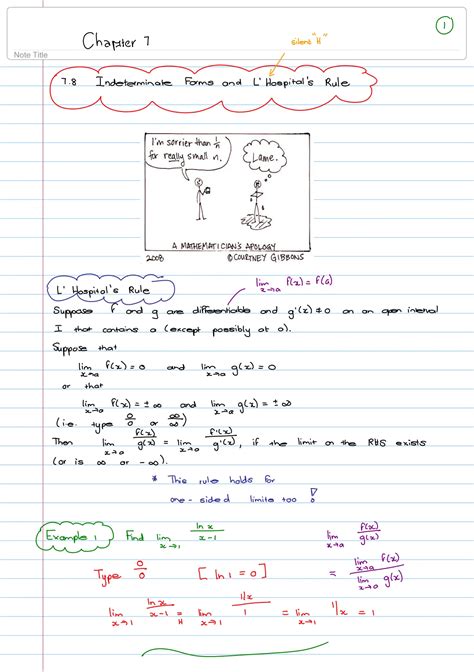 1
Chapter 7
silent "H"
Note Title
7.8 Indeterminate Forms and L'Hospital's Rule
I'm sorrier than 1/n
for really small n.
Lame.
A MATHEMATICIAN'S APOLOGY
2008 ©COURTNEY GIBBONS
L'Hospital's Rule
lim x→a f(x) = f(a)
Suppose f and g are differentiable and g'(x) ≠ 0 on an open interval
I that contains a (except possibly at a).
Suppose that
lim x→a f(x) = 0 and lim x→a g(x) = 0
or that
lim x→a f(x) = ± ∞ and lim x→a g(x) = ± ∞
(i.e. type 0/0 or ∞/∞)
Then lim x→a f(x)/g(x) = lim x→a f'(x)/g'(x), if the limit on the RHS exists
(or is ∞ or -∞).
* This rule holds for
one-sided limits too!
Example 1 Find lim x→1 ln x/x-1
lim x→a f(x)/g(x)
Type 0/0 [ln 1 = 0]
= lim x→a f(x)/lim x→a g(x)
lim x→1 ln x/x-1 =H lim x→1 1/x/1 = lim x→1 1/x = 1